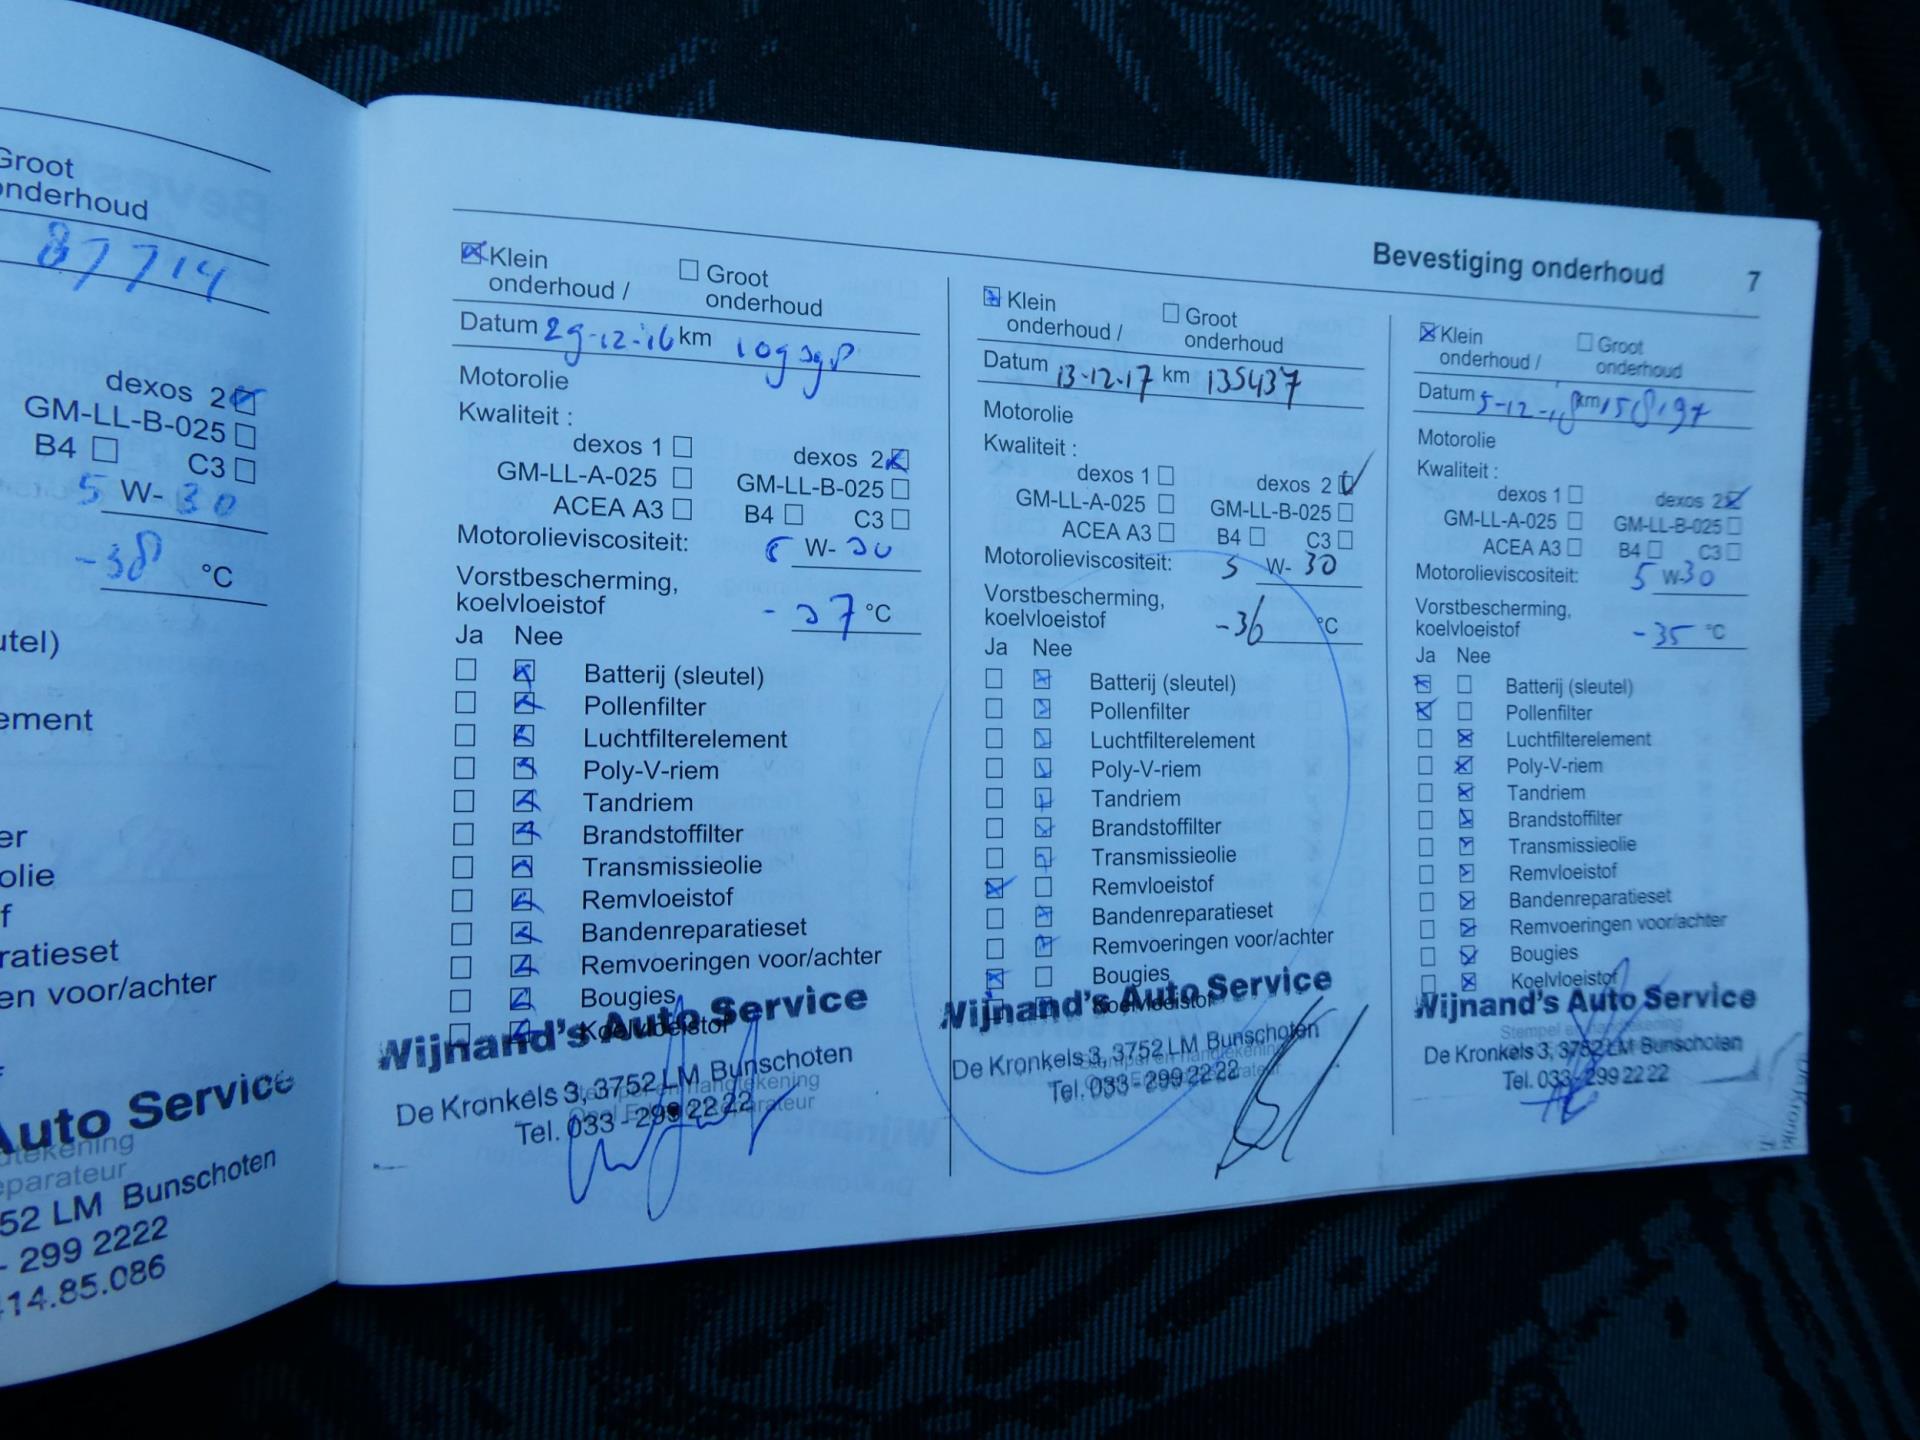 Groot
onderhoud
87714
dexos 2
GM-LL-B-025
B4 C3
5 W-30
-38 °C
utel)
ement
er
olie
f
ratieset
en voor/achter
f
Auto Service
dtekening
eparateur
52 LM Bunschoten
- 299 2222
414.85.086
Bevestiging onderhoud 7
Klein Groot
onderhoud / onderhoud
Datum 29-12-16 km
Motorolie
Kwaliteit :
dexos 1 dexos 2
GM-LL-A-025 GM-LL-B-025
ACEA A3 B4 C3
Motorolieviscositeit: 5 W-30
Vorstbescherming,
koelvloeistof -37 °C
Ja Nee
Batterij (sleutel)
Pollenfilter
Luchtfilterelement
Poly-V-riem
Tandriem
Brandstoffilter
Transmissieolie
Remvloeistof
Bandenreparatieset
Remvoeringen voor/achter
Bougies
Koelvloeistof
Wijnand's Auto Service
De Kronkels 3, 3752 LM Bunschoten
Stempel en handtekening
Tel. 033-299 22 22
Klein Groot
onderhoud / onderhoud
Datum 13-12-17 km 135437
Motorolie
Kwaliteit :
dexos 1 dexos 2
GM-LL-A-025 GM-LL-B-025
ACEA A3 B4 C3
Motorolieviscositeit: 5 W-30
Vorstbescherming,
koelvloeistof -36 °C
Ja Nee
Batterij (sleutel)
Pollenfilter
Luchtfilterelement
Poly-V-riem
Tandriem
Brandstoffilter
Transmissieolie
Remvloeistof
Bandenreparatieset
Remvoeringen voor/achter
Bougies
Koelvloeistof
Wijnand's Auto Service
De Kronkels 3, 3752 LM Bunschoten
Stempel en handtekening
Tel. 033-299 22 22
Klein Groot
onderhoud / onderhoud
Datum 5-12-18 km 158197
Motorolie
Kwaliteit :
dexos 1 dexos 2
GM-LL-A-025 GM-LL-B-025
ACEA A3 B4 C3
Motorolieviscositeit: 5 W-30
Vorstbescherming,
koelvloeistof -35 °C
Ja Nee
Batterij (sleutel)
Pollenfilter
Luchtfilterelement
Poly-V-riem
Tandriem
Brandstoffilter
Transmissieolie
Remvloeistof
Bandenreparatieset
Remvoeringen voor/achter
Bougies
Koelvloeistof
Wijnand's Auto Service
Stempel en handtekening
De Kronkels 3, 3752 LM Bunschoten
Tel. 033-299 22 22